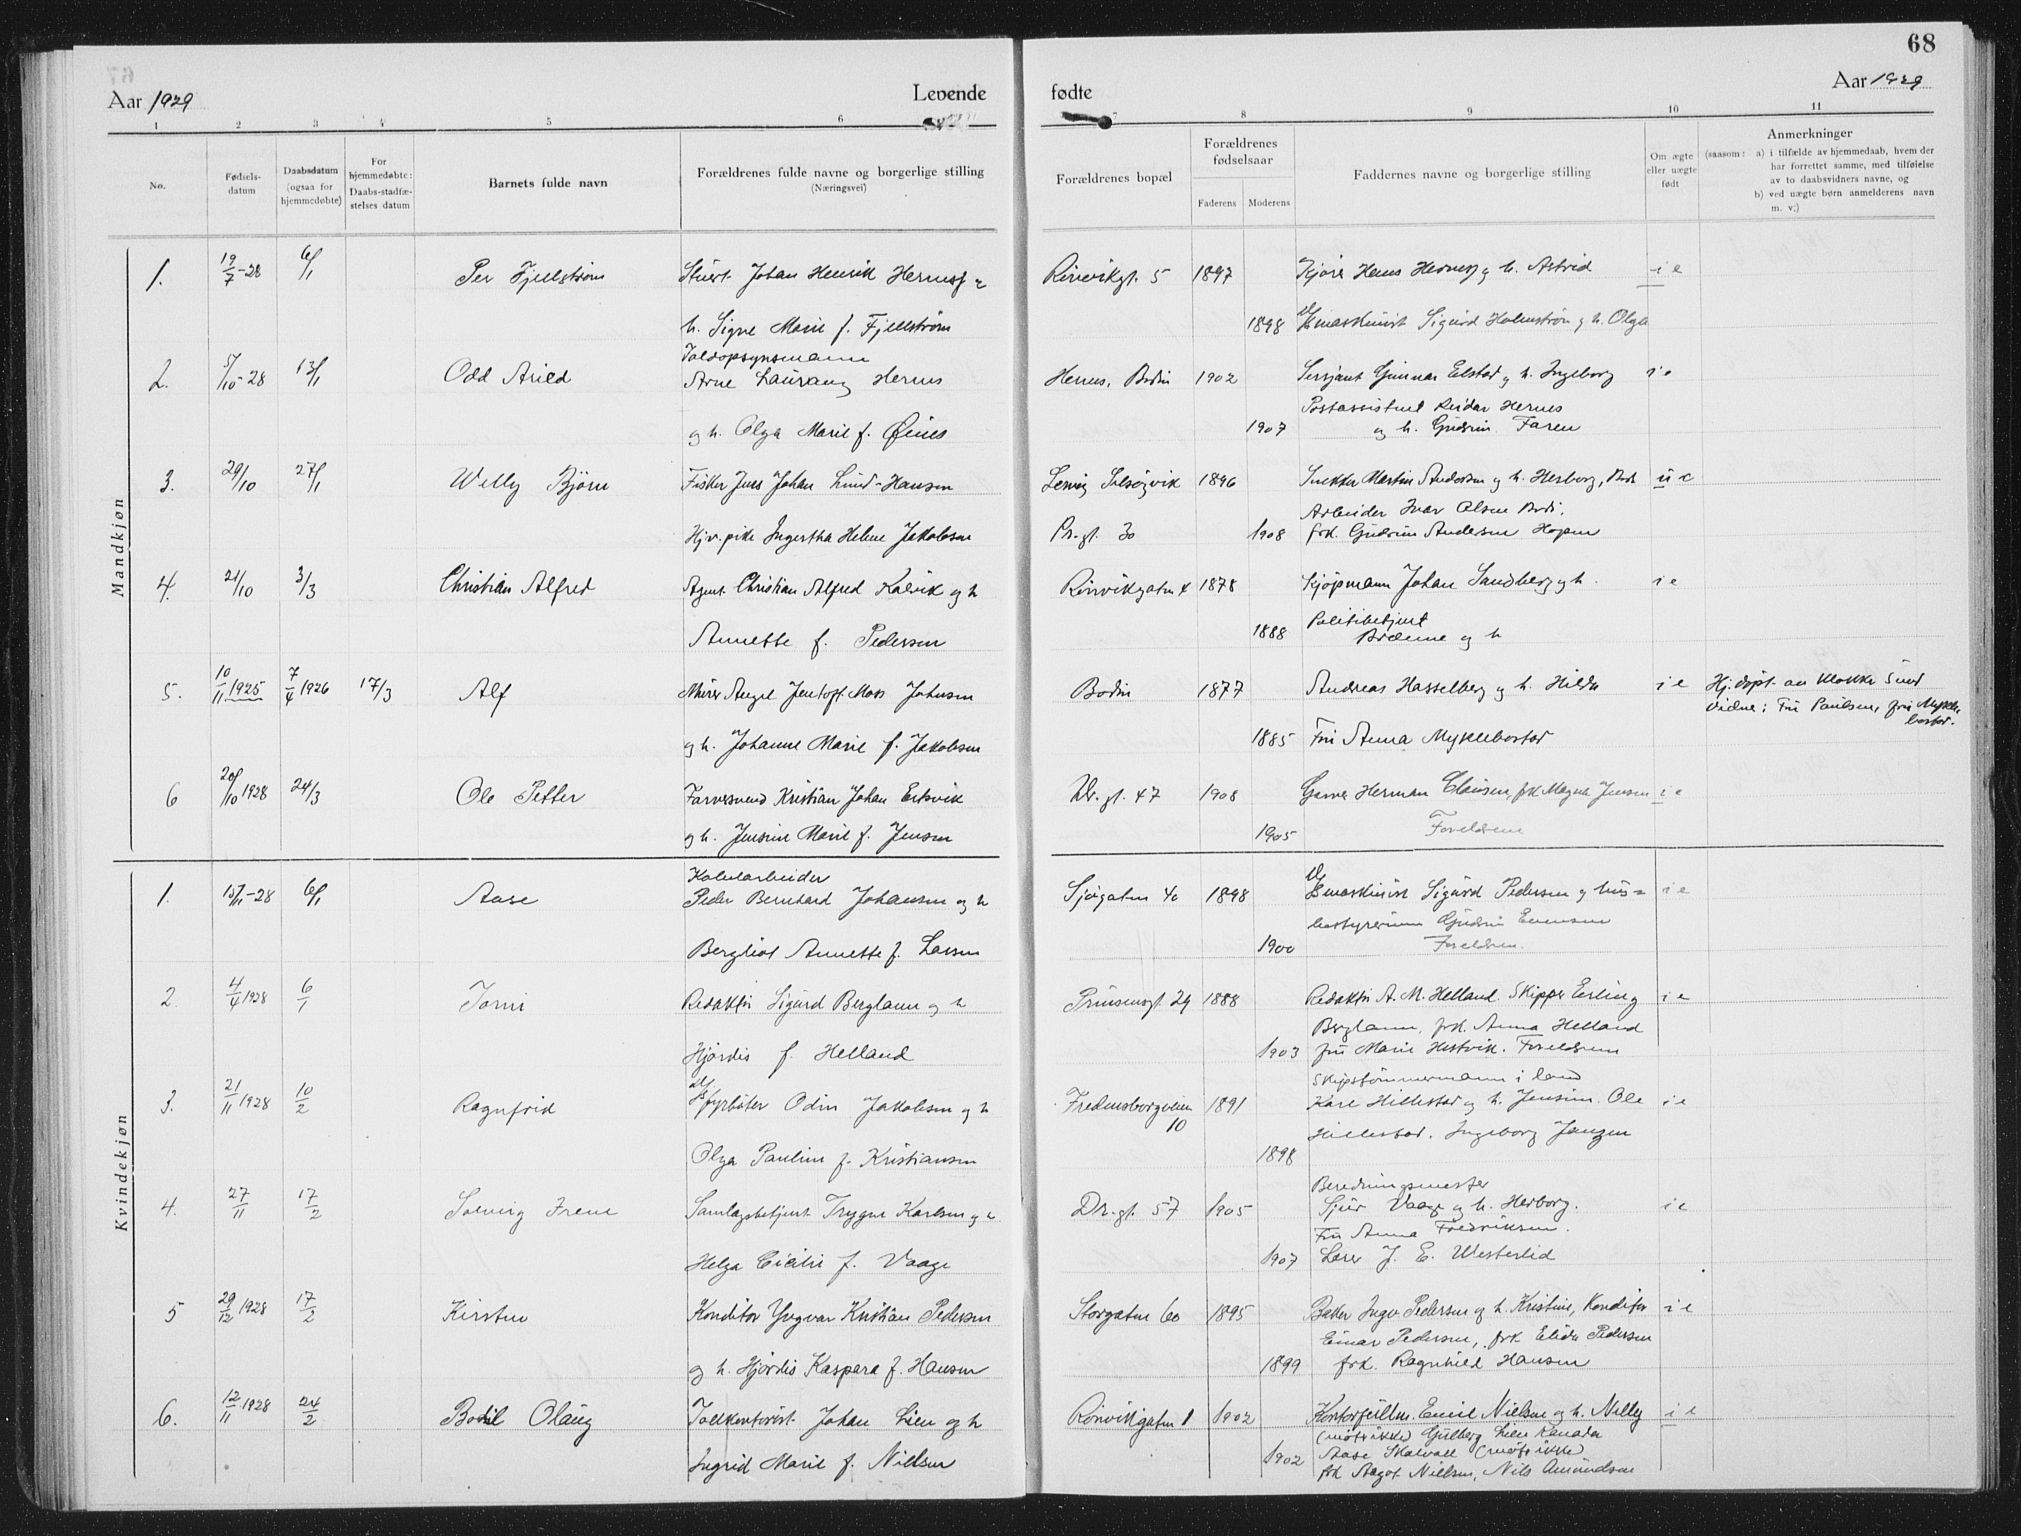 68
Aar 1929 Levende fødte Aar 1929
1 2 3 4 5 6 7 8 9 10 11
No.
Fødsels-
datum
Daabsdatum
(ogsaa for
hjemmedøbte)
For
hjemmedøbte:
Daabs-stadfæ-
stelses datum
Barnets fulde navn
Forældrenes fulde navne og borgerlige stilling
(Næringsvei)
Forældrenes bopæl
Forældrenes
fødselsaar
Faderens Moderens
Faddernes navne og borgerlige stilling
Om ægte
eller uægte
født
Anmerkninger
(saasom: a) i tilfælde av hjemmedaab, hvem der
har forrettet samme, med tilføielse
av to daabsvidners navne, og
b) ved uægte børn anmelderens navn
m. v;)
Mandkjøn
1. 19/7-28 6/1 Per Fjellstrøm Stuert Johan Henrik Hernes og Rønvikgt. 5 1897 Hans Hernes og h. Astrid i e
h. Signe Marie f. Fjellstrøm 1898 maskinist Sigurd Holmstrøm og h. Olga
Toldopsynsmann
2. 5/10-28 13/1 Odd Arild Arne Laurang Hernes Hernes, Bodin 1902 Sersjant Gunnar Elstad og h. Ingeborg i e
Postassistent Reidar Hernes
og h. Olga Marie f. Øines 1907 og h. Gudrun Faren
3. 29/10 27/1 Willy Bjørn Fisker Jens Johan Lund-Hansen 1896 Martin Andersen og h. Herborg, Bodø u e
Arbeider Ivar Olsen Bodø.
Hjv.pike Ingertha Helene Jakobsen Pr.gt. 30 1908 frk. Gudrun Andersen Hopen
4. 21/10 3/3 Christian Alfred Agent Christian Alfred Kalvik og h Rønvikgaten 4 1878 Kjøpmann Johan Sandberg og h. i e
Politibetjent
Annette f. Pedersen 1888 og h
5. 10/11 1925 7/4 1926 17/3 Alf Murer Angel Jentoft Moss Johnsen Bodin 1877 Andreas Hasselberg og h. Hilda i e Hj. døpt av klokker Sund
Vidne: Fru Paulsen, fru Mykle-
bostad.
og h. Johanne Marie f. Jakobsen 1885 Fru Anna Myklebostad
6 20/10 1928 24/3 Ole Petter Farversvend Kristian Johan Ertsvik Dr. gt. 47 1908 Garver Herman Clausen, frk Magna Jensen i e
og h. Jensine Marie f. Jensen 1905 Foreldrene
Kvindekjøn
Kolularbeider
1. 15/11-28 6/1 Aase Peder Bernhard Johansen og h Sjøgaten 40 1898 maskinist Sigurd Pedersen og hus- i e
bestyrerinne Gudrun Evensen
Bergliot Annette f. Larsen 1900 Foreldrene.
2. 4/4 1928 6/1 Torni Redaktør Sigurd Berglann og h Prinsensgt. 29 1888 Redaktør A. M. Helland. Skipper Erling i e
Berglann, frk. Anna Helland
Hjørdis f. Helland 1903 fru Marie Hestvik. Foreldrene
Skipstømmermann i land
3. 21/11 1928 10/2 Ragnfrid fyrbøter Odin Jakobsen og h Fredensborgveien 1891 Kare Hillestad og h. Jensine. Ole i e
10 Hillestad. Ingeborg Janzen
Olga Pauline f. Kristiansen 1898
Beredningsmester
4. 27/11 17/2 Solveig Irene Samlagsbetjent Trygve Karlsen og h Dr. gt. 57 1905 Sjur Vaage og h. Herborg. i e
Fru Anna Fredriksen.
Helga Cicilie f. Vaage 1907 Lærer J. E. Westerlid
5 29/12 1928 17/2 Kirsten Konditor Yngvar Kristian Pedersen Storgaten 60 1895 Baker Ingv. Pedersen og h. Kristine, Konditor i e
Einar Pedersen, frk Elida Pedersen
og h. Hjørdis Kaspara f. Hansen 1899 frk. Ragnhild Hansen
6. 12/11 1928 24/2 Bodil Olaug Tollkontorist Johan Lien og h Rønvikgaten 1 1902 Kontorfullm. Emil Nielsen og h. Nelly i e
(møtt ikke) Gulborg Lien Kanada
1902 Aase Skalvoll (møtt ikke)
Ingrid Marie f. Nielsen frk Aagot Nielsen, Nils Amundsen